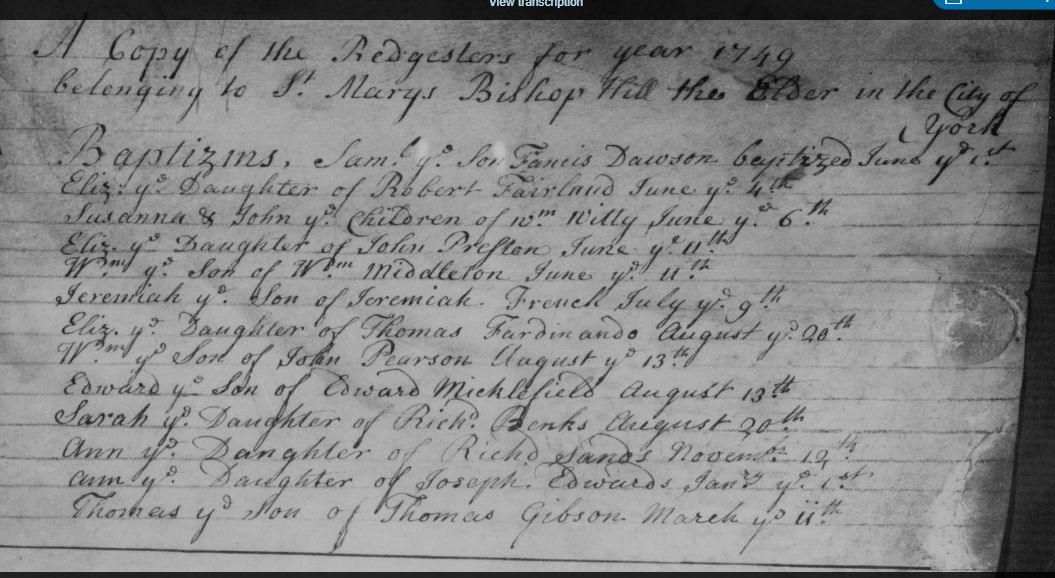 View transcription
A Copy of the Redgesters for year 1749
belonging to St. Marys Bishop Hill the Elder in the City of
York
Baptizms, Saml. ye. Son Fancis Dawson baptized June ye 1st
Eliz: ye. Daughter of Robert Fairland June ye. 4th
Susanna & John ye. Children of wm Witty June ye. 6th
Eliz. ye Daughter of John Preston June ye 11th
Wm ye. Son of Wm Middleton June ye. 11th
Jeremiah ye. Son of Jeremiah French July ye. 9th
Eliz. ye. Daughter of Thomas Fardinando August ye. 20th
Wm ye Son of John Pearson August ye 13th
Edward ye Son of Edward Micklefield August 13th
Sarah ye. Daughter of Richd. August 20th
Ann ye. Daughter of Richd Sands Novemr. 12th
Ann ye. Daughter of Joseph Edwards Janry ye. 1st
Thomas ye Son of Thomas Gibson March ye 11th